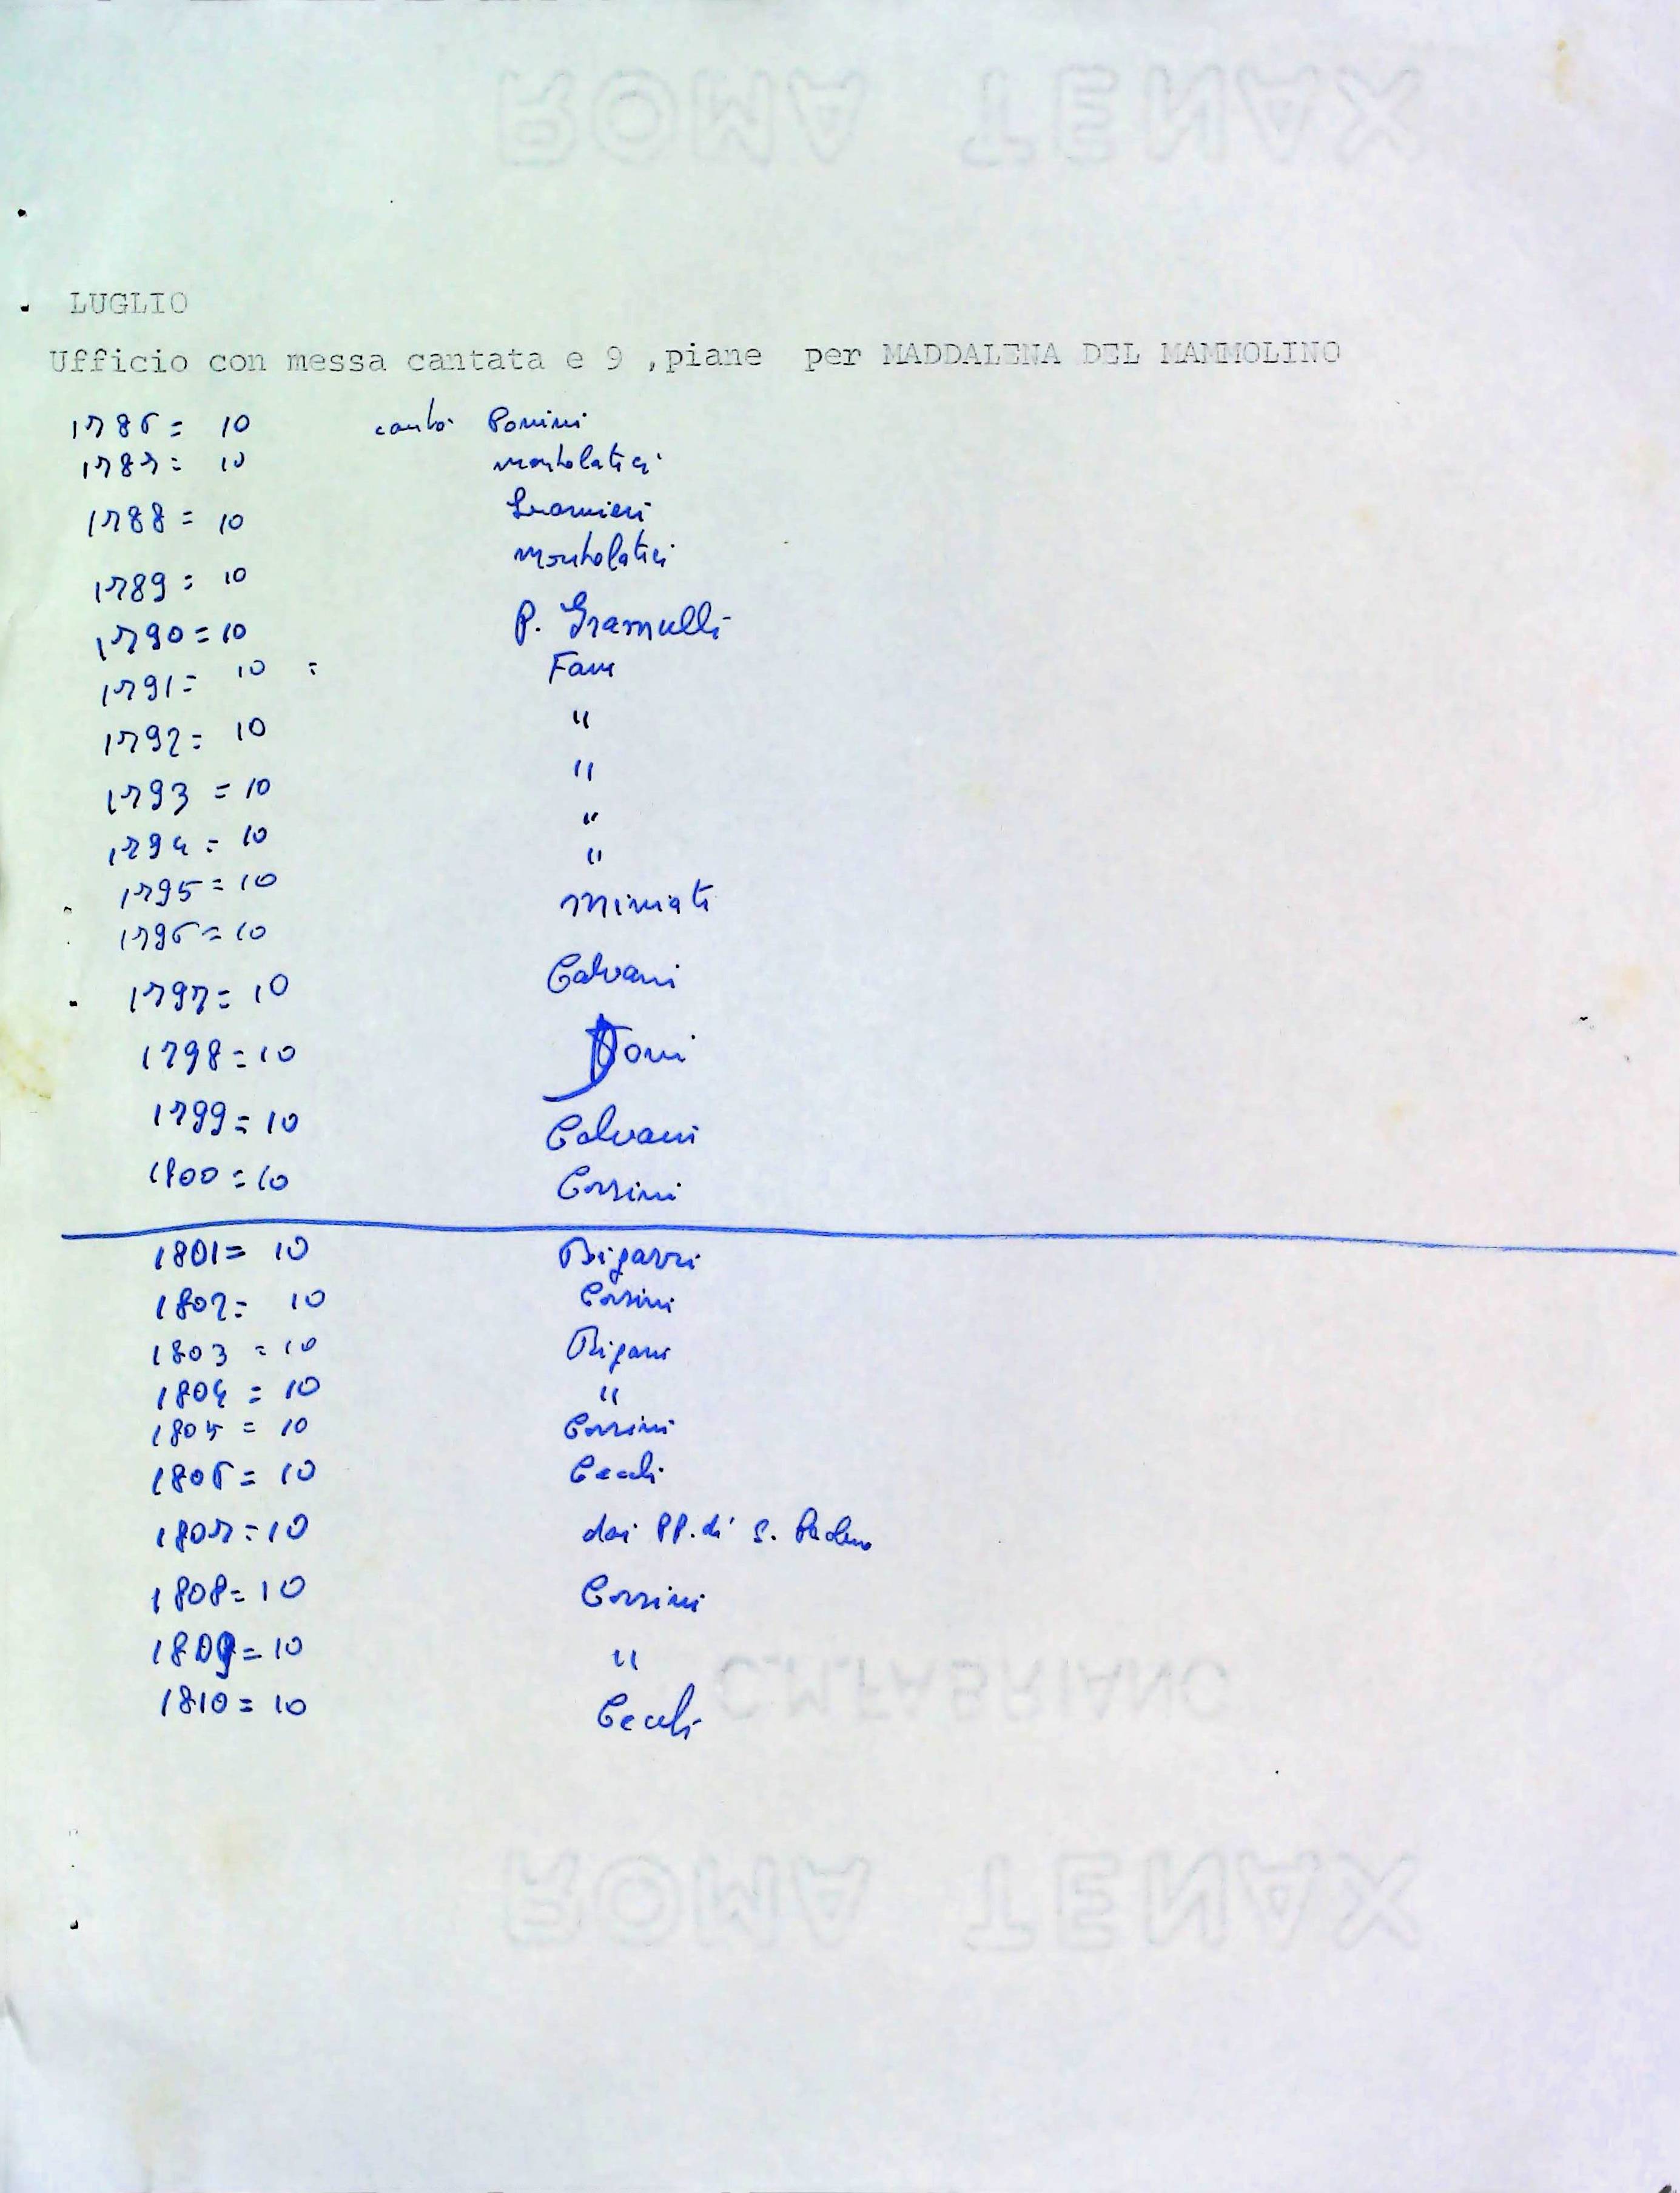 ROMA TENAX
LUGLIO
Ufficio con messa cantata e 9 ,piane per MADDALENA DEL MAMMOLINO
1786 = 10 cantò Ponini
1787 = 10 Montolatici
1788 = 10
1789 = 10 Montolatici
1790 = 10 P. Gramulli
1791 = 10 = Fani
1792 = 10 "
1793 = 10 "
1794 = 10 "
1795 = 10 "
1796 = 10 Miniati
1797 = 10 Calvani
1798 = 10 Doni
1799 = 10 Calvani
1800 = 10 Corsini
1801 = 10 Bigazzi
1802 = 10 Corsini
1803 = 10
1804 = 10 "
1805 = 10 Corsini
1806 = 10 Ceceli
1807 = 10 dai PP. di S. Paolino
1808 = 10 Corsini
1809 = 10 "
C.M.FABRIANO
1810 = 10 Ceceli
ROMA TENAX